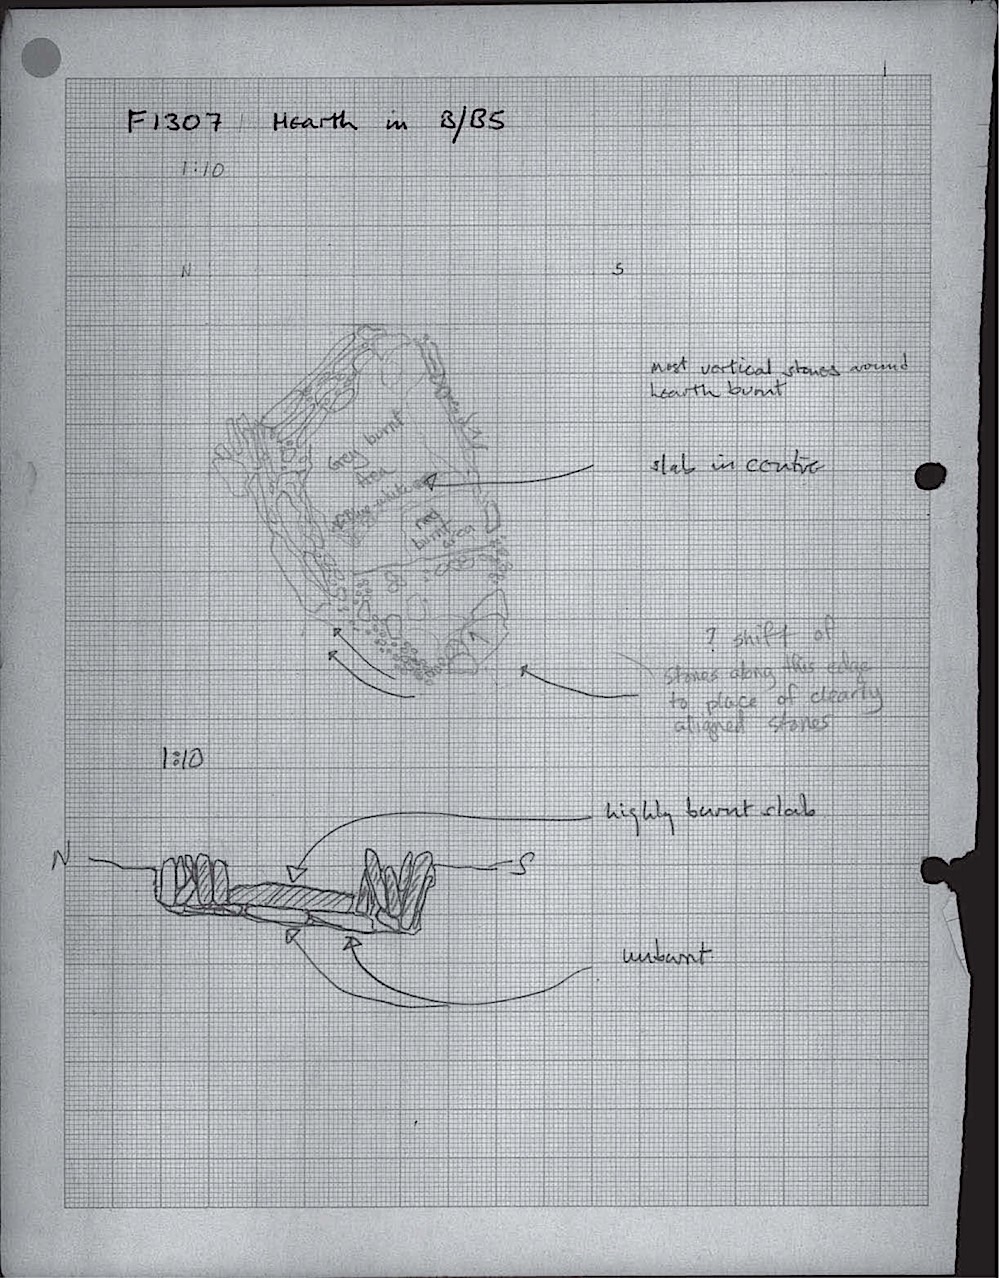 F1307 Hearth in B/B5
1:10
N
S
most vertical stones round
hearth burnt
Grey burnt
Area
slab in centre
red
burnt area
? shift of
stones along this edge
to place of clearly
aligned stones
1:10
highly burnt slab
N
S
unburnt